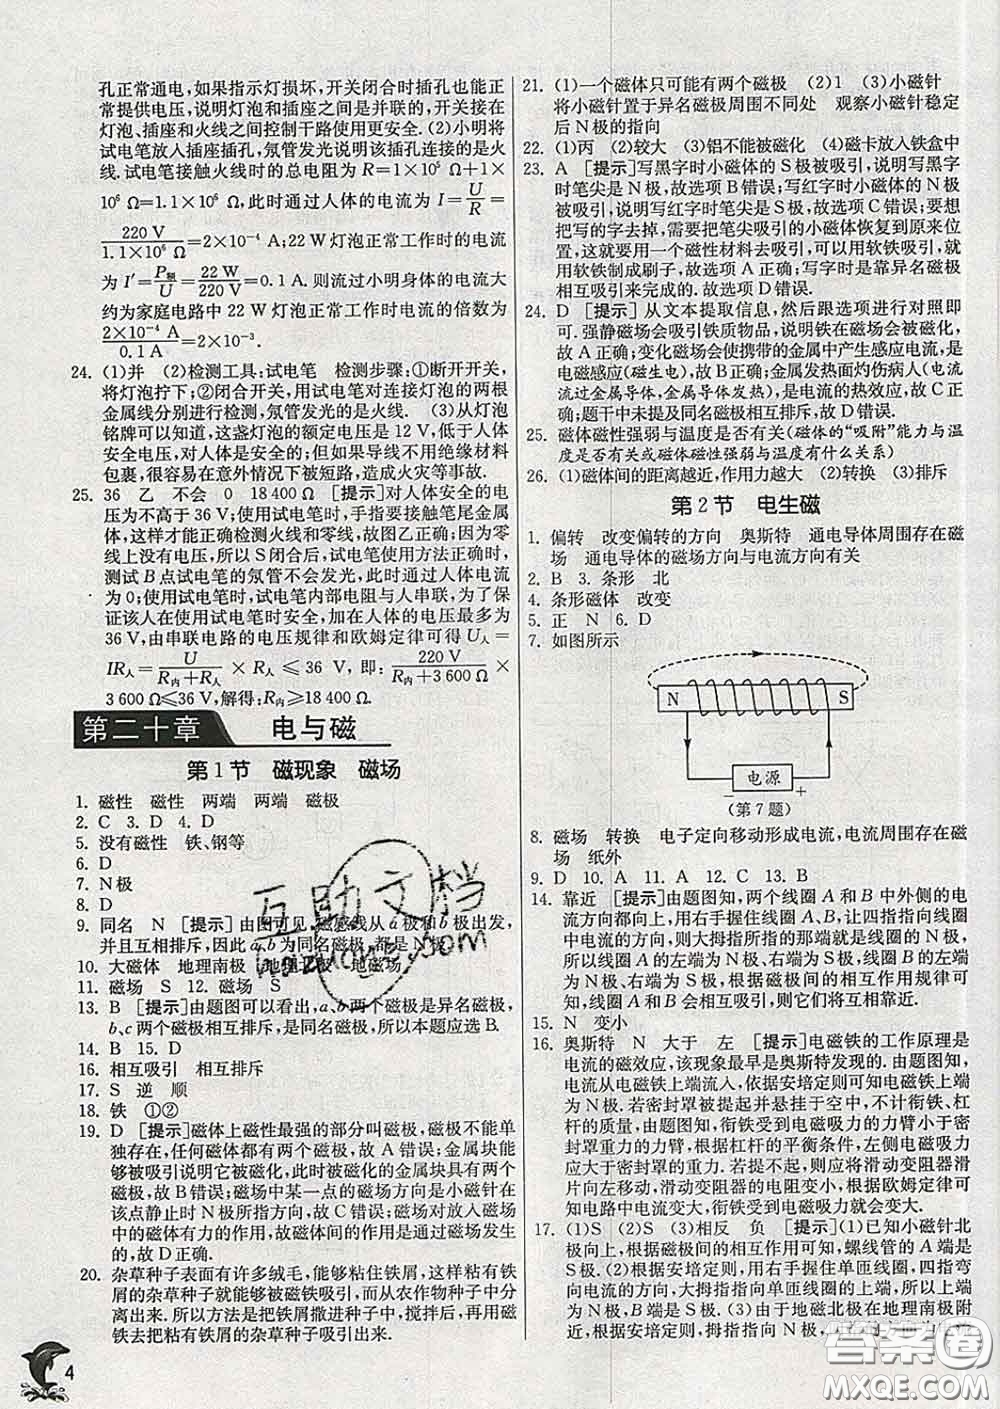 孔正常通电,如果指示灯损坏,开关闭合时插孔也能正
常提供电压,说明灯泡和插座之间是并联的,开关接在
灯泡、插座和火线之间控制干路使用更安全.(2)小明将
试电笔放入插座插孔,氖管发光说明该插孔连接的是火
线.试电笔接触火线时的总电阻为 R=1×10⁶ Ω+1×
10⁵ Ω=1.1×10⁶ Ω,此时通过人体的电流为 I=U/R=
220 V/1.1×10⁶ Ω=2×10⁻⁴ A;22 W灯泡正常工作时的电流
为 I′=P额/U=22 W/220 V=0.1 A.则流过小明身体的电流大
约为家庭电路中 22 W 灯泡正常工作时电流的倍数为
2×10⁻⁴ A/0.1 A=2×10⁻³.
24. (1)并 (2)检测工具:试电笔 检测步骤:①断开开关,
将灯泡拧下;②闭合开关,用试电笔对连接灯泡的两根
金属线分别进行检测,氖管发光的是火线. (3)从灯泡
铭牌可以知道,这盏灯泡的额定电压是 12 V,低于人体
安全电压,对人体是安全的;但如果导线不用绝缘材料
包裹,很容易在意外情况下被短路,造成火灾等事故.
25. 36 乙 不会 0 18 400 Ω [提示]对人体安全的电
压为不高于 36 V;使用试电笔时,手指要接触笔尾金属
体,这样才能正确检测火线和零线,故图乙正确;因为零
线上没有电压,所以 S闭合后,试电笔使用方法正确时,
测试 B 点试电笔的氖管不会发光,此时通过人体电流
为 0;使用试电笔时,试电笔内部电阻与人串联,为了保
证该人在使用试电笔时安全,加在人体的电压最多为
36 V,由串联电路的电压规律和欧姆定律可得 U人=
IR人=U/(R内+R人)×R人≤36 V,即:220 V/(R内+3 600 Ω)×
3 600 Ω≤36 V,解得:R内≥18 400 Ω.
第二十章 电与磁
第1节 磁现象 磁场
1. 磁性 磁性 两端 两端 磁极
2. C 3. D 4. D
5. 没有磁性 铁、钢等
6. D
7. N极
8. D
9. 同名 N [提示]由图可见,磁感线从 a 极和 b 极出发,
并且互相排斥,因此 a、b 为同名磁极,都是 N 极.
10. 大磁体 地理南极 地理北极 地磁场
11. 磁场 S 12. 磁场 S
13. B [提示]由题图可以看出,a、b 两个磁极是异名磁极,
b、c 两个磁极相互排斥,是同名磁极,所以本题应选 B.
14. B 15. D
16. 相互吸引 相互排斥
17. S 逆 顺
18. 铁 ①②
19. D [提示]磁体上磁性最强的部分叫磁极,磁极不能单
独存在,任何磁体都有两个磁极,故 A 错误;金属块能
够被吸引说明它被磁化,此时被磁化的金属块具有两个
磁极,故 B错误;磁场中某一点的磁场方向是小磁针在
该点静止时 N极所指方向,故 C错误;对放入磁场
中磁体有力的作用,故磁体间的作用是通过磁场发生
的,故 D正确.
20. 杂草种子表面有许多绒毛,能够粘住铁屑,这样粘有铁
屑的杂草种子就能够被磁铁吸引,而从农作物种子中分
离出来.所以方法是把铁屑撒进种子中,搅拌后,再用磁
铁去把粘有铁屑的杂草种子吸引出来.
4
21. (1)一个磁体只可能有两个磁极 (2)1 (3)小磁针
将小磁针置于异名磁极周围不同处 观察小磁针稳定
后 N极的指向
22. (1)丙 (2)较大 (3)铝不能被磁化 (4)磁卡放入铁盒中
23. A [提示]写黑字时小磁体的 S极被吸引,说明写黑字
时笔尖是 N极,故选项 B错误;写红字时小磁体的 N极
被吸引,说明写红字时笔尖是 S极,故选项 C错误;要想
把写的字去掉,需要把笔尖吸引的小磁体恢复到原来位
置,这就要用一个磁性材料去吸引,可以用软铁吸引,就
用软铁制成刷子,故选项 A正确;写字时是靠异名磁极
相互吸引来完成的.故选项 D错误.
24. D [提示]从文本提取信息,然后跟选项进行对照即
可.强静磁场会吸引铁质物品,说明铁在磁场会被磁化,
故 A正确;变化磁场会使携带的金属中产生感应电流,是
电磁感应(磁生电),故 B正确;金属发热面灼伤病人(电流
流过金属导体,金属导体发热),是电流的热效应,故 C正
确;题干中未提及同名磁极相互排斥,故 D错误.
25. 磁体磁性强弱与温度是否有关(磁体的“吸附”能力与温
度是否有关或磁体磁性强弱与温度有什么关系)
26. (1)磁体间的距离越近,作用力越大 (2)转换 (3)排斥
第2节 电生磁
1. 偏转 改变偏转的方向 奥斯特 通电导体周围存在磁
场 通电导体的磁场方向与电流方向有关
2. B 3. 条形 北
4. 条形磁体 改变
5. 正 N 6. D
7. 如图所示
N S
电源
− +
(第7题)
8. 磁场 转换 电子定向移动形成电流,电流周围存在磁
场 纸外
9. D 10. A 11. A 12. C 13. B
14. 靠近 [提示]由题图知,两个线圈 A 和 B 中外侧的电
流方向都向上,用右手握住线圈 A、B,让四指指向线圈
中电流的方向,则大拇指所指的那端就是线圈的 N极,
所以线圈 A 的左端为 N极、右端为 S极,线圈 B 的左端
为 N极、右端为 S极,根据磁极间的相互作用规律可
知,线圈 A 和 B 会相互吸引,则它们将互相靠近.
15. N 变小
16. 奥斯特 N 大于 左 [提示]电磁铁的工作原理是
电流的磁效应,该现象最早是奥斯特发现的.由题图知,
电流从电磁铁上端流入,依据安培定则可知电磁铁上端
为 N极.若密封罩被提起并悬挂在空中,不计衔铁、杠
杆的质量,衔铁受到电磁吸力的力臂小于密
封罩重力的力臂,根据杠杆的平衡条件,左侧电磁吸力
应大于密封罩的重力.若提不起,则应将滑动变阻器滑
片向左移动,滑动变阻器的电阻变小,根据欧姆定律可
知电路中电流变大,衔铁受到电磁吸力就会变大.
17. (1)S (2)S (3)相反 负 [提示](1)已知小磁针北
极向上,根据磁极间的相互作用可知,螺线管的 A端为
S极.(2)根据安培定则,用右手握住单匝线圈,四指弯
向电流的方向,大拇指指向单匝线圈的上端,所以上端
为 N极,下端为 S极.(3)由于地磁北极在地理南极附
近,根据安培定则,拇指指向 N极,
互助文档
答案圈
MXQE.COM